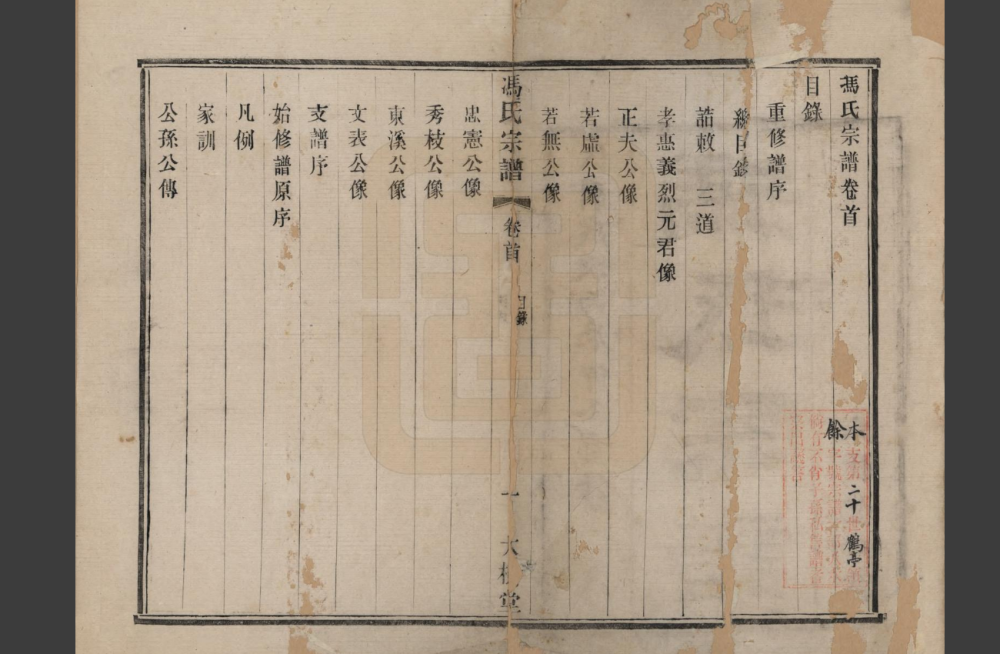 馮氏宗譜卷首
目錄
重修譜序
總目錄
誥敕　三道
孝惠義烈元君像
正夫公像
若虛公像
若無公像
馮氏宗譜　卷首　目錄　一　大樹堂
忠憲公像
秀枝公像
東溪公像
文表公像
支譜序
始修譜原序
凡例
家訓
公孫公傳
本
餘
二十
鶴亭